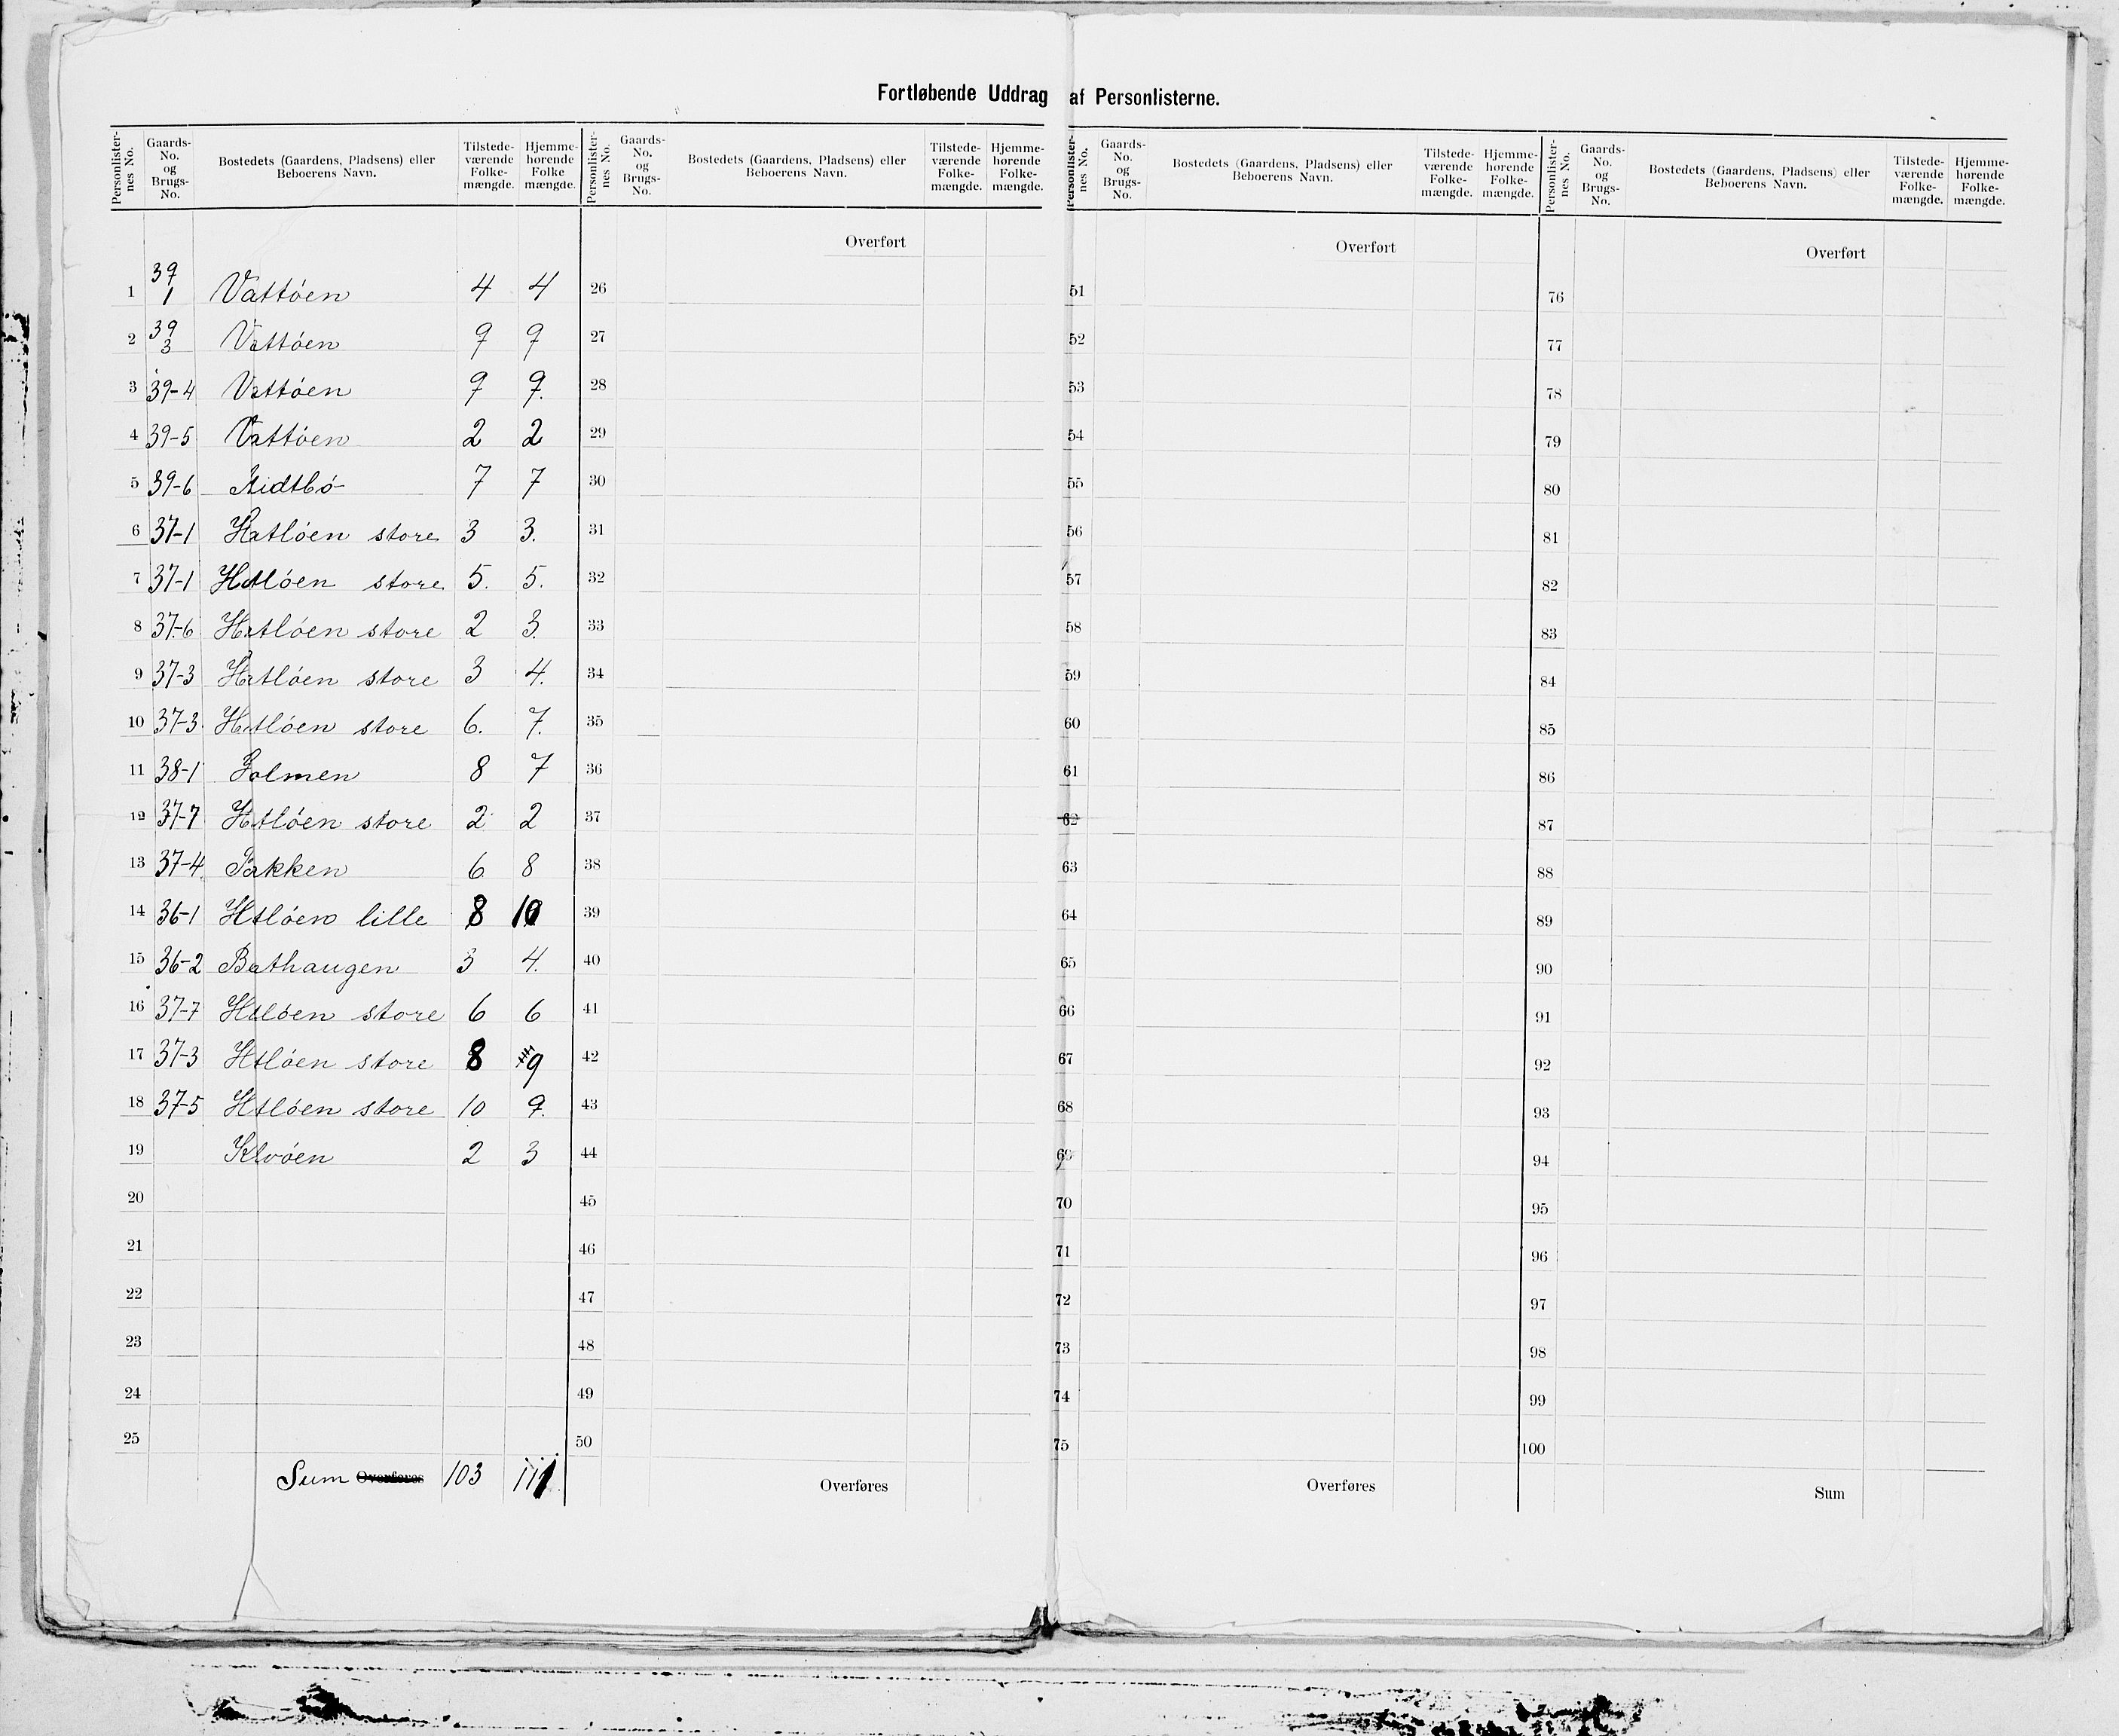 Fortløbende Uddrag af Personlisterne.
Personlisternes No. Gaards-No. og Brugs-No. Bostedets (Gaardens, Pladsens) eller Beboerens Navn. Tilstedeværende Folkemængde. Hjemmehørende Folkemængde. Personlisternes No. Gaards-No. og Brugs-No. Bostedets (Gaardens, Pladsens) eller Beboerens Navn. Tilstedeværende Folkemængde. Hjemmehørende Folkemængde. Personlisternes No. Gaards-No. og Brugs-No. Bostedets (Gaardens, Pladsens) eller Beboerens Navn. Tilstedeværende Folkemængde. Hjemmehørende Folkemængde. Personlisternes No. Gaards-No. og Brugs-No. Bostedets (Gaardens, Pladsens) eller Beboerens Navn. Tilstedeværende Folkemængde. Hjemmehørende Folkemængde.
Overført Overført Overført
1 39 1 Vattöen 4 4 26 51 76
2 39 3 Vattöen 9 9 27 52 77
3 39-4 Vattöen 9 9. 28 53 78
4 39-5 Vattöen 2 2 29 54 79
5 39-6 7 7 30 55 80
6 37-1 Hatlöen store 3 3. 31 56 81
7 37-1 Hatlöen store 5. 5. 32 57 82
8 37-6 Hatlöen store 2 3. 33 58 83
9 37-3 Hatlöen store 3 4. 34 59 84
10 37-3. Hatlöen store 6. 7. 35 60 85
11 38-1 Holmen 8 7 36 61 86
12 37-7 Hatlöen store 2 2 37 62 87
13 37-4. Bakken 6 8 38 63 88
14 36-1 Hatlöen lille 8 10 39 64 89
15 36-2 Bathaugen 3 4. 40 65 90
16 37-7 Hatlöen store 6 6 41 66 91
17 37-3 Hatlöen store 8 9 42 67 92
18 37-5 Hatlöen store 10 9. 43 68 93
19 2 3 44 69 94
20 45 70 95
21 46 71 96
22 47 72 97
23 48 73 98
24 49 74 99
25 50 75 100
Sum Overføres 103 111 Overføres Overføres Sum